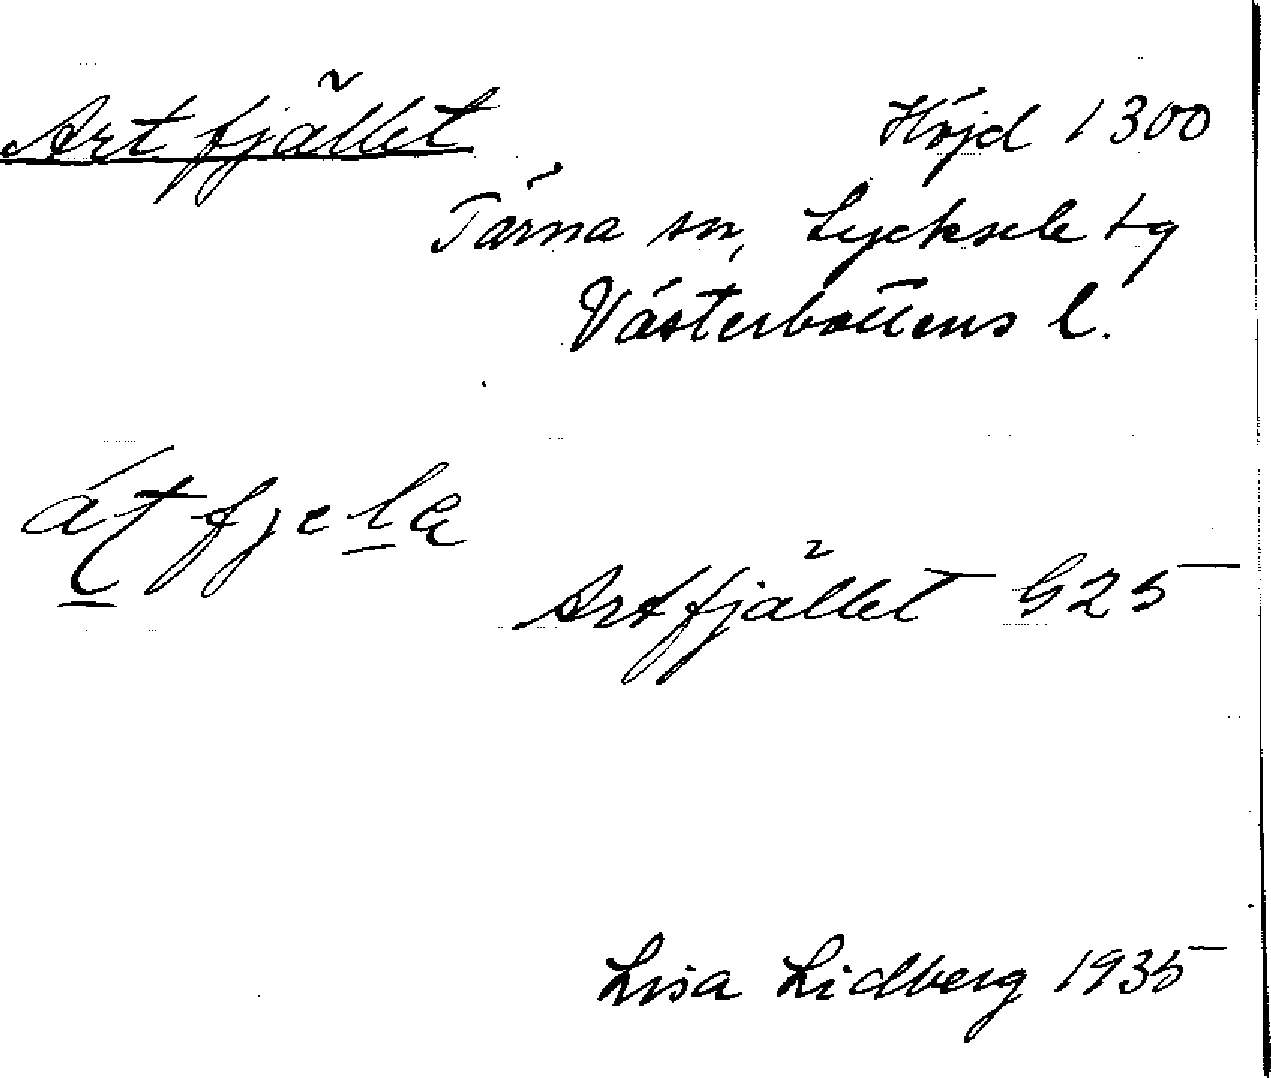 Artfjället Höjd 1300
Tärna sn, Lycksele tg
Västerbottens l.
Artfjället G25
Lisa Lidberg 1935